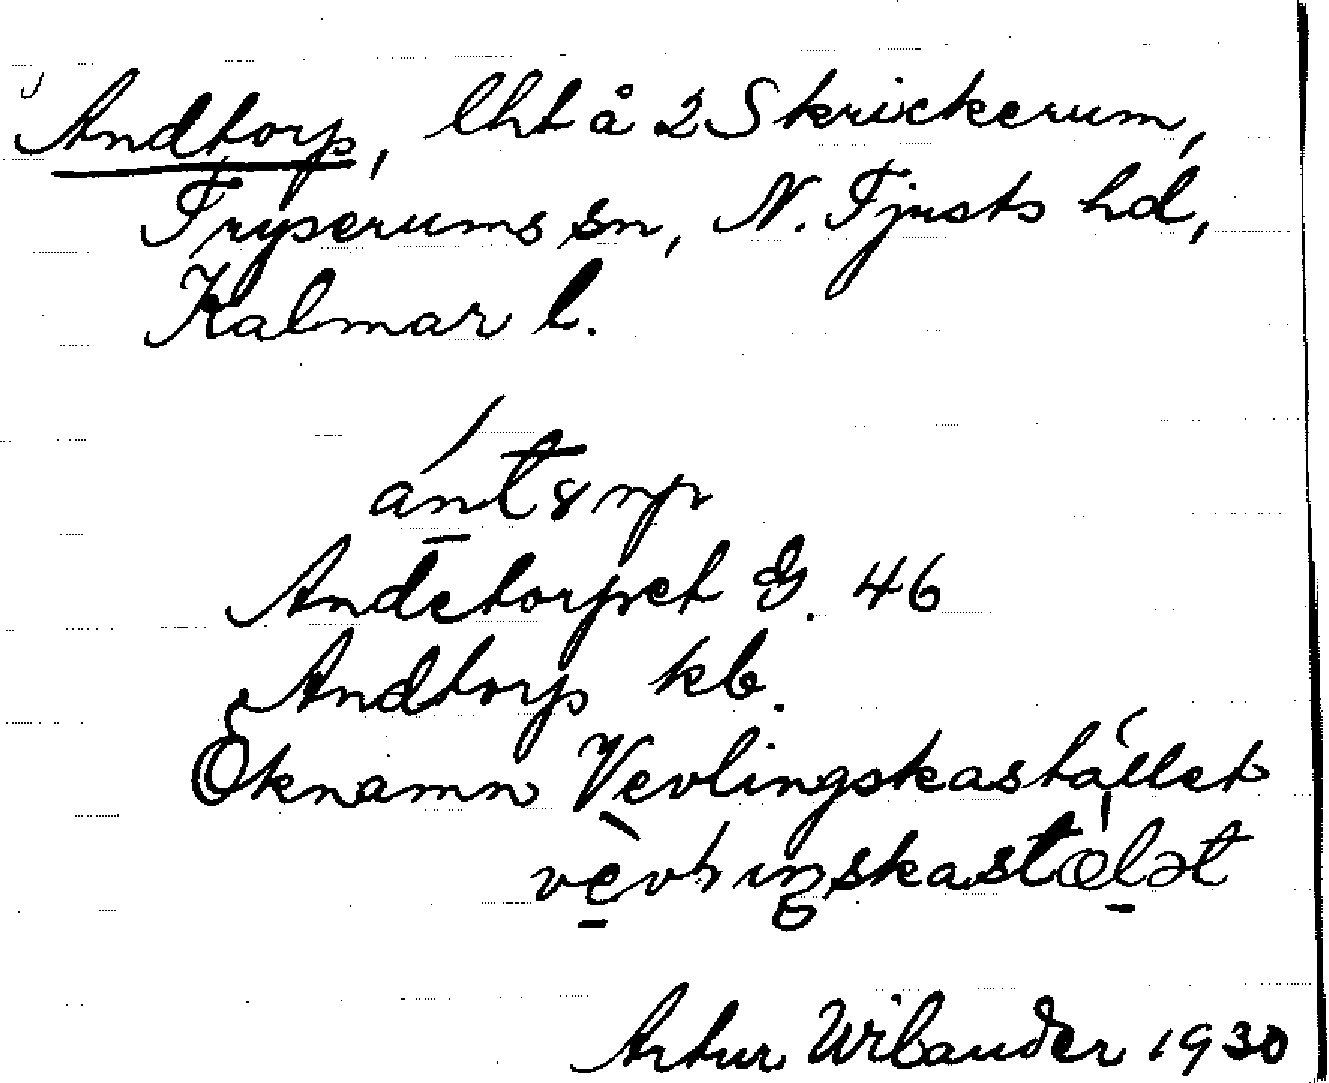 Andtorp, lht å 2 Skrickerum,
Tryserums sn, N. Tjusts hd,
Kalmar l.
Andetorpet G. 46
Andtorp kb.
Öknamn Vevlingskastället
Artur Wilander 1930